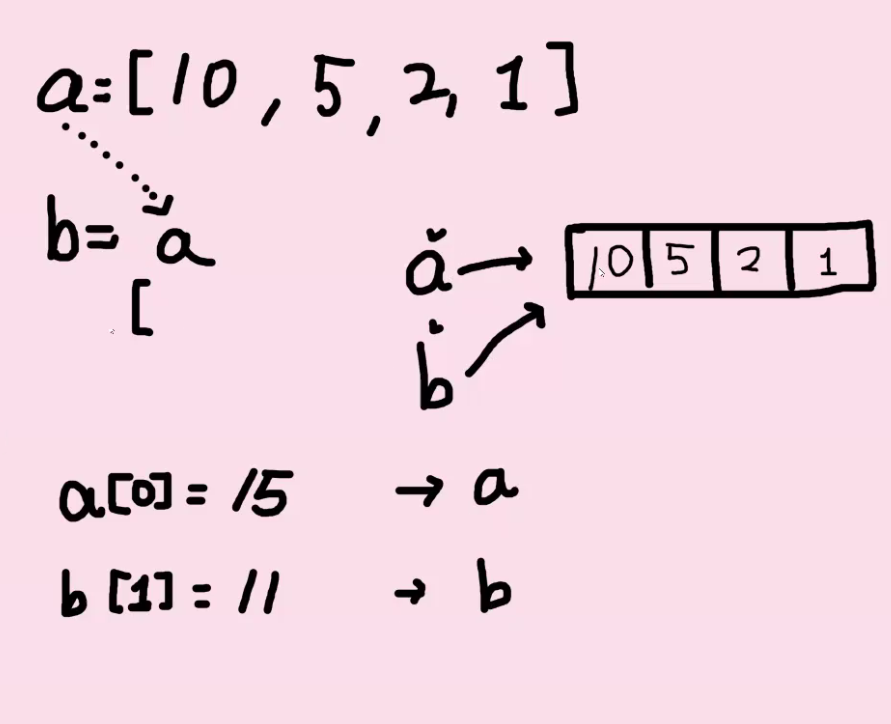 a=[10, 5, 2, 1]
b= a
[
a → 10 5 2 1
b
a[0] = 15 → a
b[1] = 11 → b